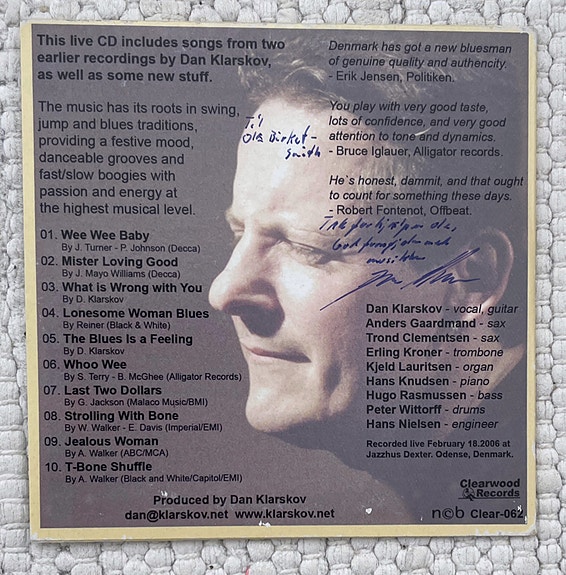 This live CD includes songs from two
earlier recordings by Dan Klarskov,
as well as some new stuff.
The music has its roots in swing,
jump and blues traditions,
providing a festive mood,
danceable grooves and
fast/slow boogies with
passion and energy at
the highest musical level.
01. Wee Wee Baby
By J. Turner - P. Johnson (Decca)
02. Mister Loving Good
By J. Mayo Williams (Decca)
03. What is Wrong with You
By D. Klarskov
04. Lonesome Woman Blues
By Reiner (Black & White)
05. The Blues Is a Feeling
By D. Klarskov
06. Whoo Wee
By S. Terry - B. McGhee (Alligator Records)
07. Last Two Dollars
By G. Jackson (Malaco Music/BMI)
08. Strolling With Bone
By W. Walker - E. Davis (Imperial/EMI)
09. Jealous Woman
By A. Walker (ABC/MCA)
10. T-Bone Shuffle
By A. Walker (Black and White/Capitol/EMI)
Produced by Dan Klarskov
dan@klarskov.net www.klarskov.net
Denmark has got a new bluesman
of genuine quality and authencity.
- Erik Jensen, Politiken.
You play with very good taste,
lots of confidence, and very good
attention to tone and dynamics.
- Bruce Iglauer, Alligator records.
He`s honest, dammit, and that ought
to count for something these days.
- Robert Fontenot, Offbeat.
Til
Ole Birket-
Smith
Tak for hjælpen
God
musikken
Dan Klarskov - vocal, guitar
Anders Gaardmand - sax
Trond Clementsen - sax
Erling Kroner - trombone
Kjeld Lauritsen - organ
Hans Knudsen - piano
Hugo Rasmussen - bass
Peter Wittorff - drums
Hans Nielsen - engineer
Recorded live February 18.2006 at
Jazzhus Dexter. Odense, Denmark.
Clearwood
Records
n©b Clear-062